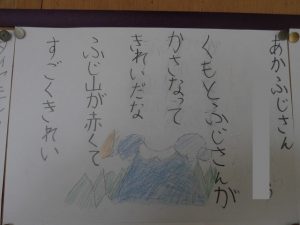 あかふじさん
くもとふじさんが
かさなって
きれいだな
ふじ山が赤くて
すごくきれい